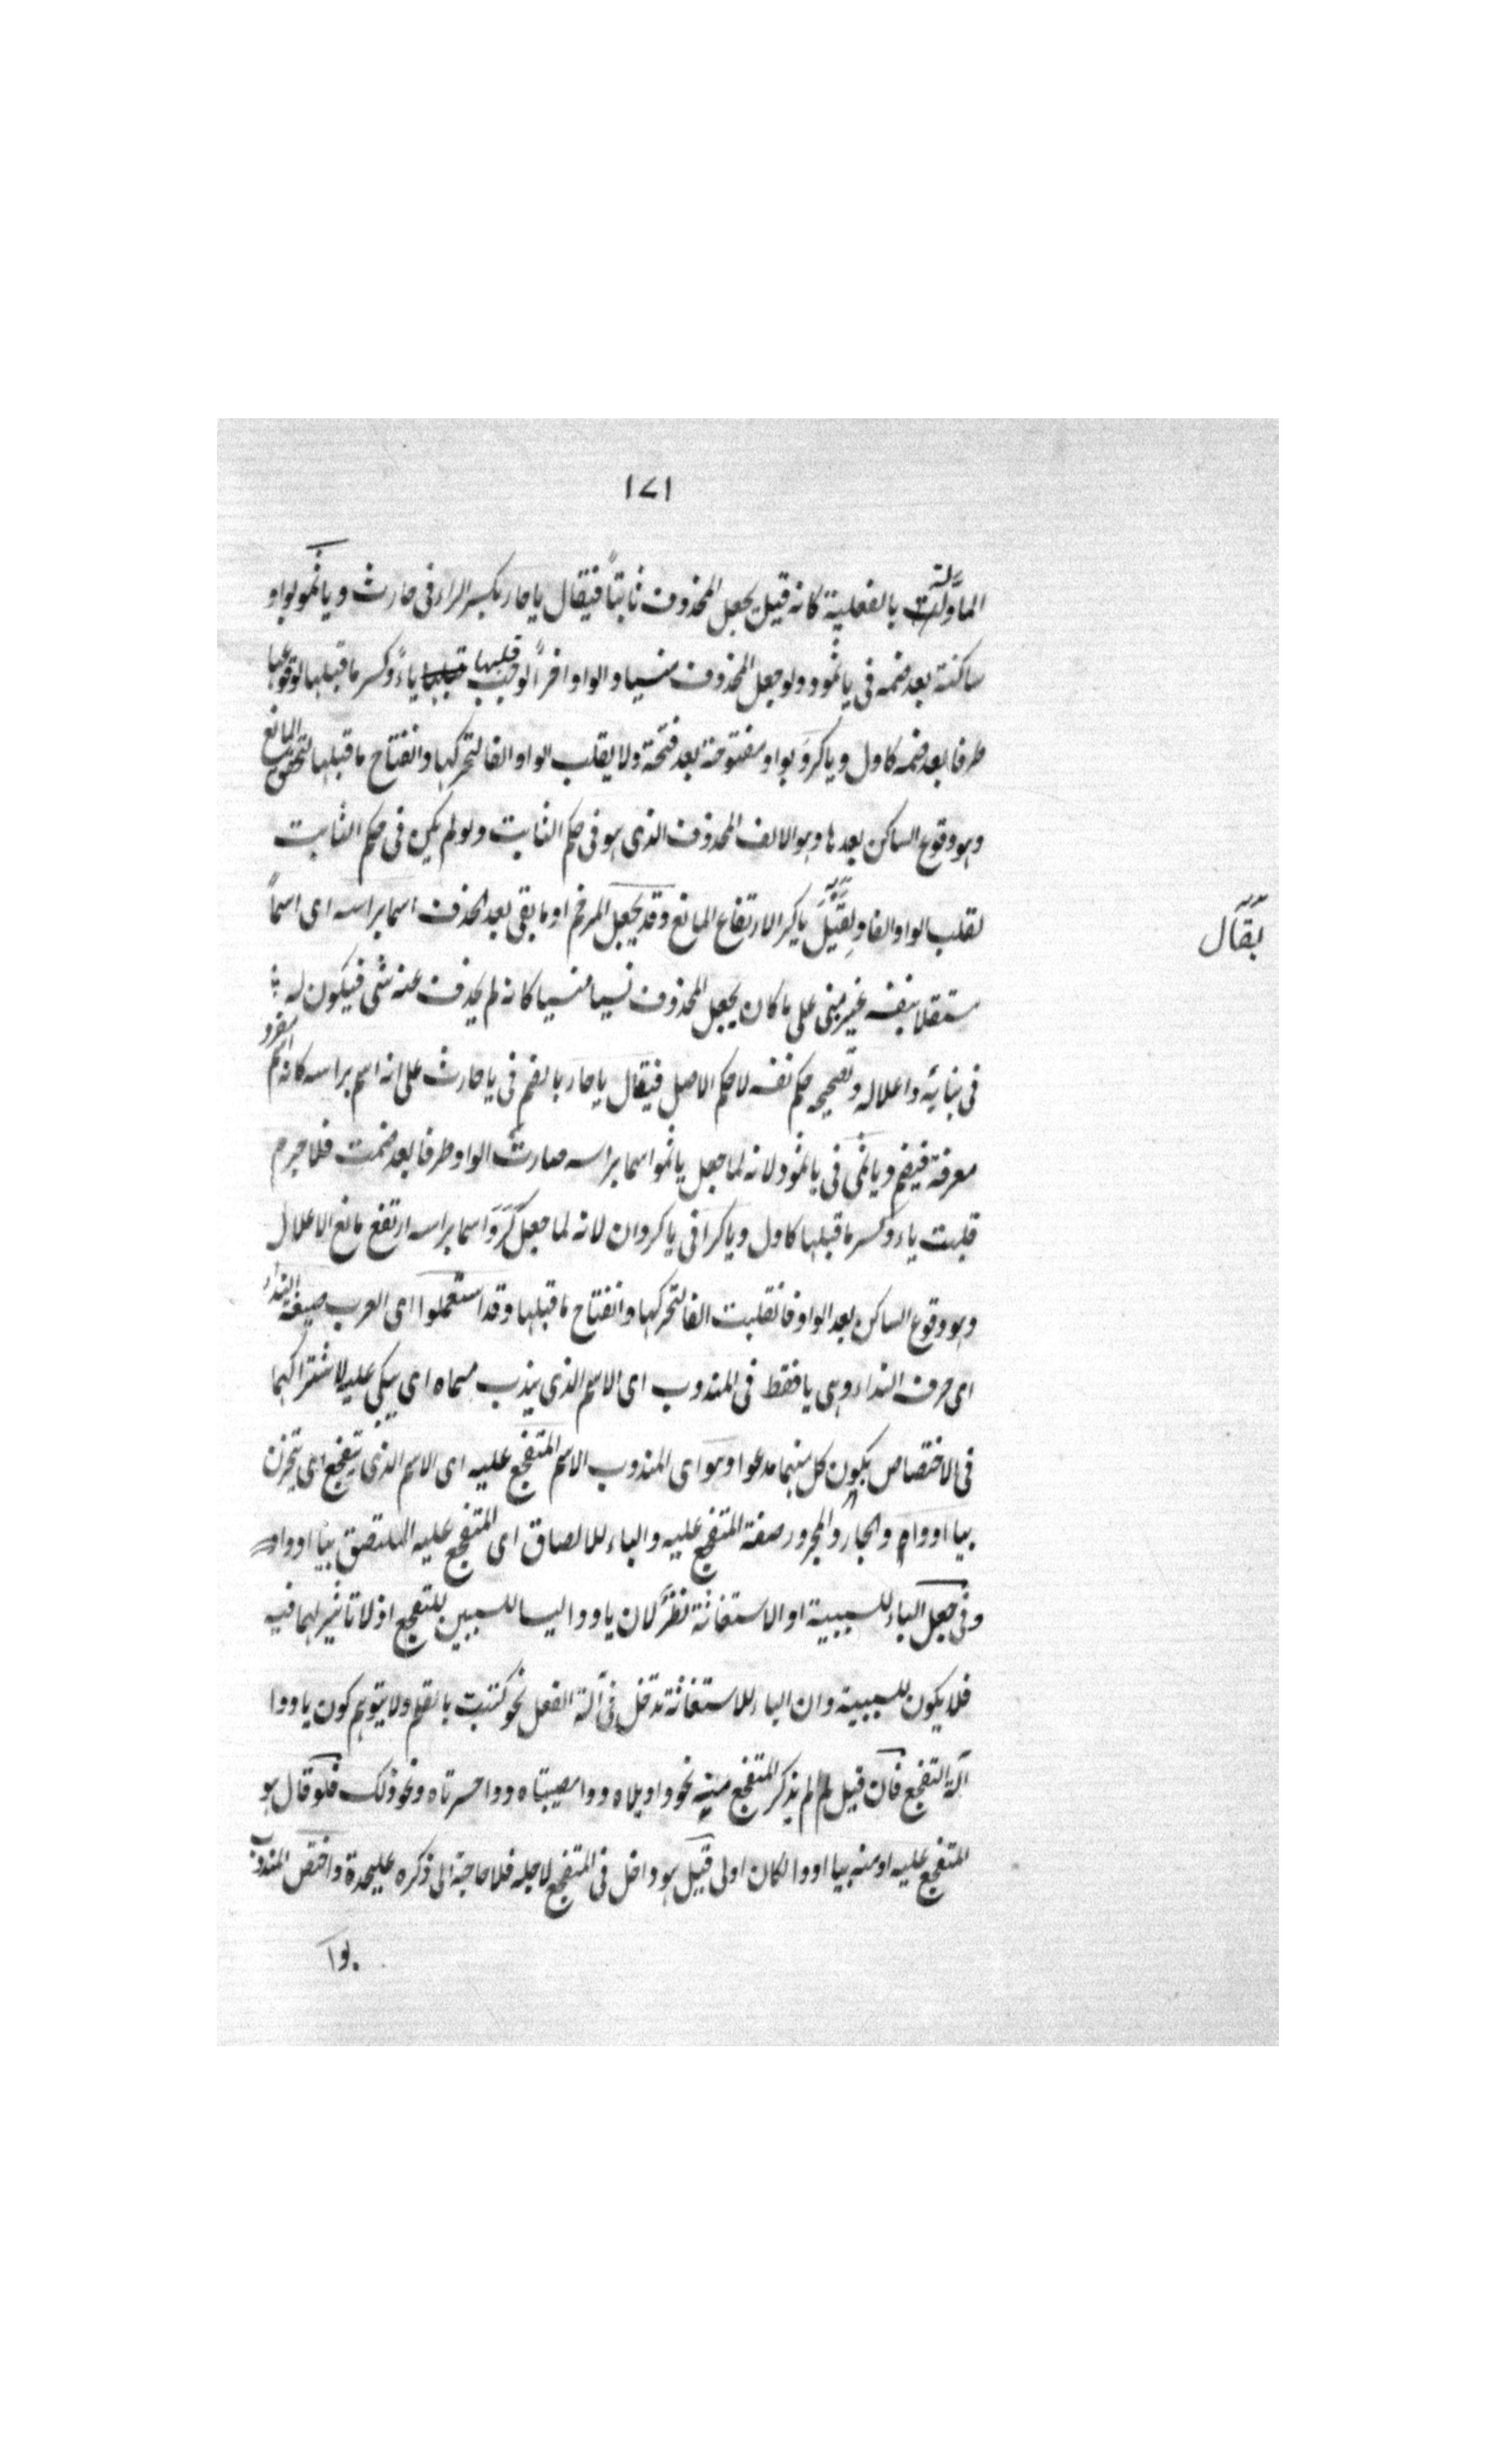 ١٧١
الماولة بالفعلية كانه قيل يجعل المحذوف ثابتاً فيقال يا حار بكسر الراء فى حارث ويا ثمو بواو
ساكنة بعد ضمه فى يا ثمود ولو جعل المحذوف منسيا والواو اخراً لوجب قلبها ياءً وكسر ما قبلها لوقوعها
طرفا بعد ضمه كاول ويا كروَ بواو مفتوحة بعد فتحة ولا يقلب الواو الفا لتحركها وانفتاح ما قبلها لتحقق المانع
وهو وقوع الساكن بعدها وهو الالف المحذوف الذى هو فى حكم الثابت ولو لم يكن فى حكم الثابت
لقلب الواو الفا ولقيل يا كرا لارتفاع المانع وقد يجعل المرخم او ما بقى بعد الحذف اسما براسه اى اسماً
يقال
مستقلا بنفسه غير مبنى على ما كان يجعل المحذوف نسيا منسيا كانه لم يحذف عنه شى فيكون له
فى بنائه واعلاله وتصحيحه حكم نفسه لا حكم الاصل فيقال يا حار بالضم فى يا حارث على انه اسم براسه كانه اسم مفرد
معرفة فيضم ويا ثمى فى يا ثمود لانه لما جعل يا ثمو اسما براسه صارت الواو طرفا بعد ضمت فلا جرم
قلبت ياء وكسر ما قبلها كاول ويا كرا فى يا كروان لانه لما جعل كَرَوَا اسما براسه ارتفع مانع الاعلال
وهو وقوع الساكن بعد الواو فانقلبت الفا لتحركها وانفتاح ما قبلها وقد استعملوا اى العرب صيغة النداء
اى حرف النداء وهى يا فقط فى المندوب اى الاسم الذى يندب مسماه اى يبكى عليه لاشتراكهما
فى الاختصاص بكون كل منهما مدعوا وهو اى المندوب الاسم المتفجع عليه اى الاسم الذى يتفجع اى يتحزن
بيا او وا والجار والمجرور صفة المتفجع عليه والباء للالصاق اى المتفجع عليه الملتصق بيا او وا
وفى جعل الباء للسببية او الاستعانة نظر لان يا ووا ليسا للسببين للتفجع اذ لا تاثير لهما فيه
فلا يكون للسببية وان الباء للاستعانة تدخل فى آلة الفعل نحو كتبت بالقلم ولا يتوهم كون يا ووا
آلة التفجع فان قيل لم لم يذكر المتفجع منه نحو واويلاه ووا مصيبتاه ووا حسرتاه ونحو ذلك فلو قال هو
المتفجع عليه او منه بيا او وا لكان اولى قيل هو داخل فى المتفجع لاجله فلا حاجة الى ذكره عليحدة واختص المندوب
بوا